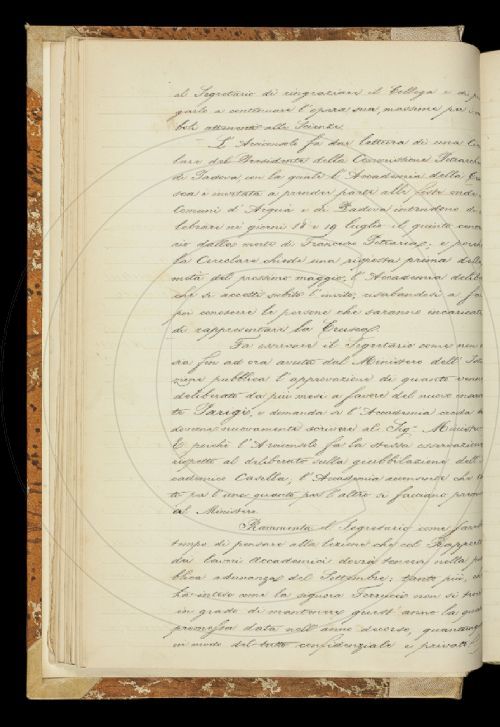 al Segretario di ringraziare il Collega e di
garlo a continuare l'opera sua, massime per
bili attenenti alle Scienze.
L'Arciconsolo fa dar lettura di una
lare del Presidente della Commissione Petrarche
di Padova con la quale l'Accademia della Cru
sca è invitata a prender parte alle feste
i Comuni d'Arquà e di Padova intendono
lebrare ne' giorni 18 e 19 luglio il quinto cente
rio dalla morte di Francesco Petrarca, e perch
la Circolare chiede una risposta prima della
metà del prossimo maggio, l'Accademia delib
che si accetti subito l'invito, riserbandosi a far
poi conoscere le persone che saranno incaricate
di rappresentare la Crusca.
Fa avvertire il Segretario come non
sia fin ad ora avuta dal Ministero dell'Istru
zione pubblica l'approvazione di quanto venne
deliberato da più mesi a favore del nuovo
to Parigi, e domanda se l'Accademia creda
doversi nuovamente scrivere al Sig. Ministro.
E poichè l'Arciconsolo fa la stessa osservazione
rispetto al deliberato sulla giubbilazione dell'
cademico Casella, l'Accademia acconsente che
to per l'uno quanto per l'altro si facciano
al Ministero.
Rammenta il Segretario come sarebbe
tempo di pensare alla lezione che col Rapporto
dei lavori Accademici dovrà tenersi nella pu
blica adunanza del Settembre; tanto più, ch
ha inteso come la signora Ferrucci non si trov
in grado di mantenere quest'anno la
promessa data nell'anno decorso, quantunque
in modo del tutto confidenziale e privato